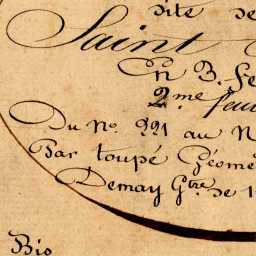 dite de
Saint
En 3. fe
2.me feui
Du No. 221 au N
Par toupé Géomè
Demay Gtre. de 1
Bio